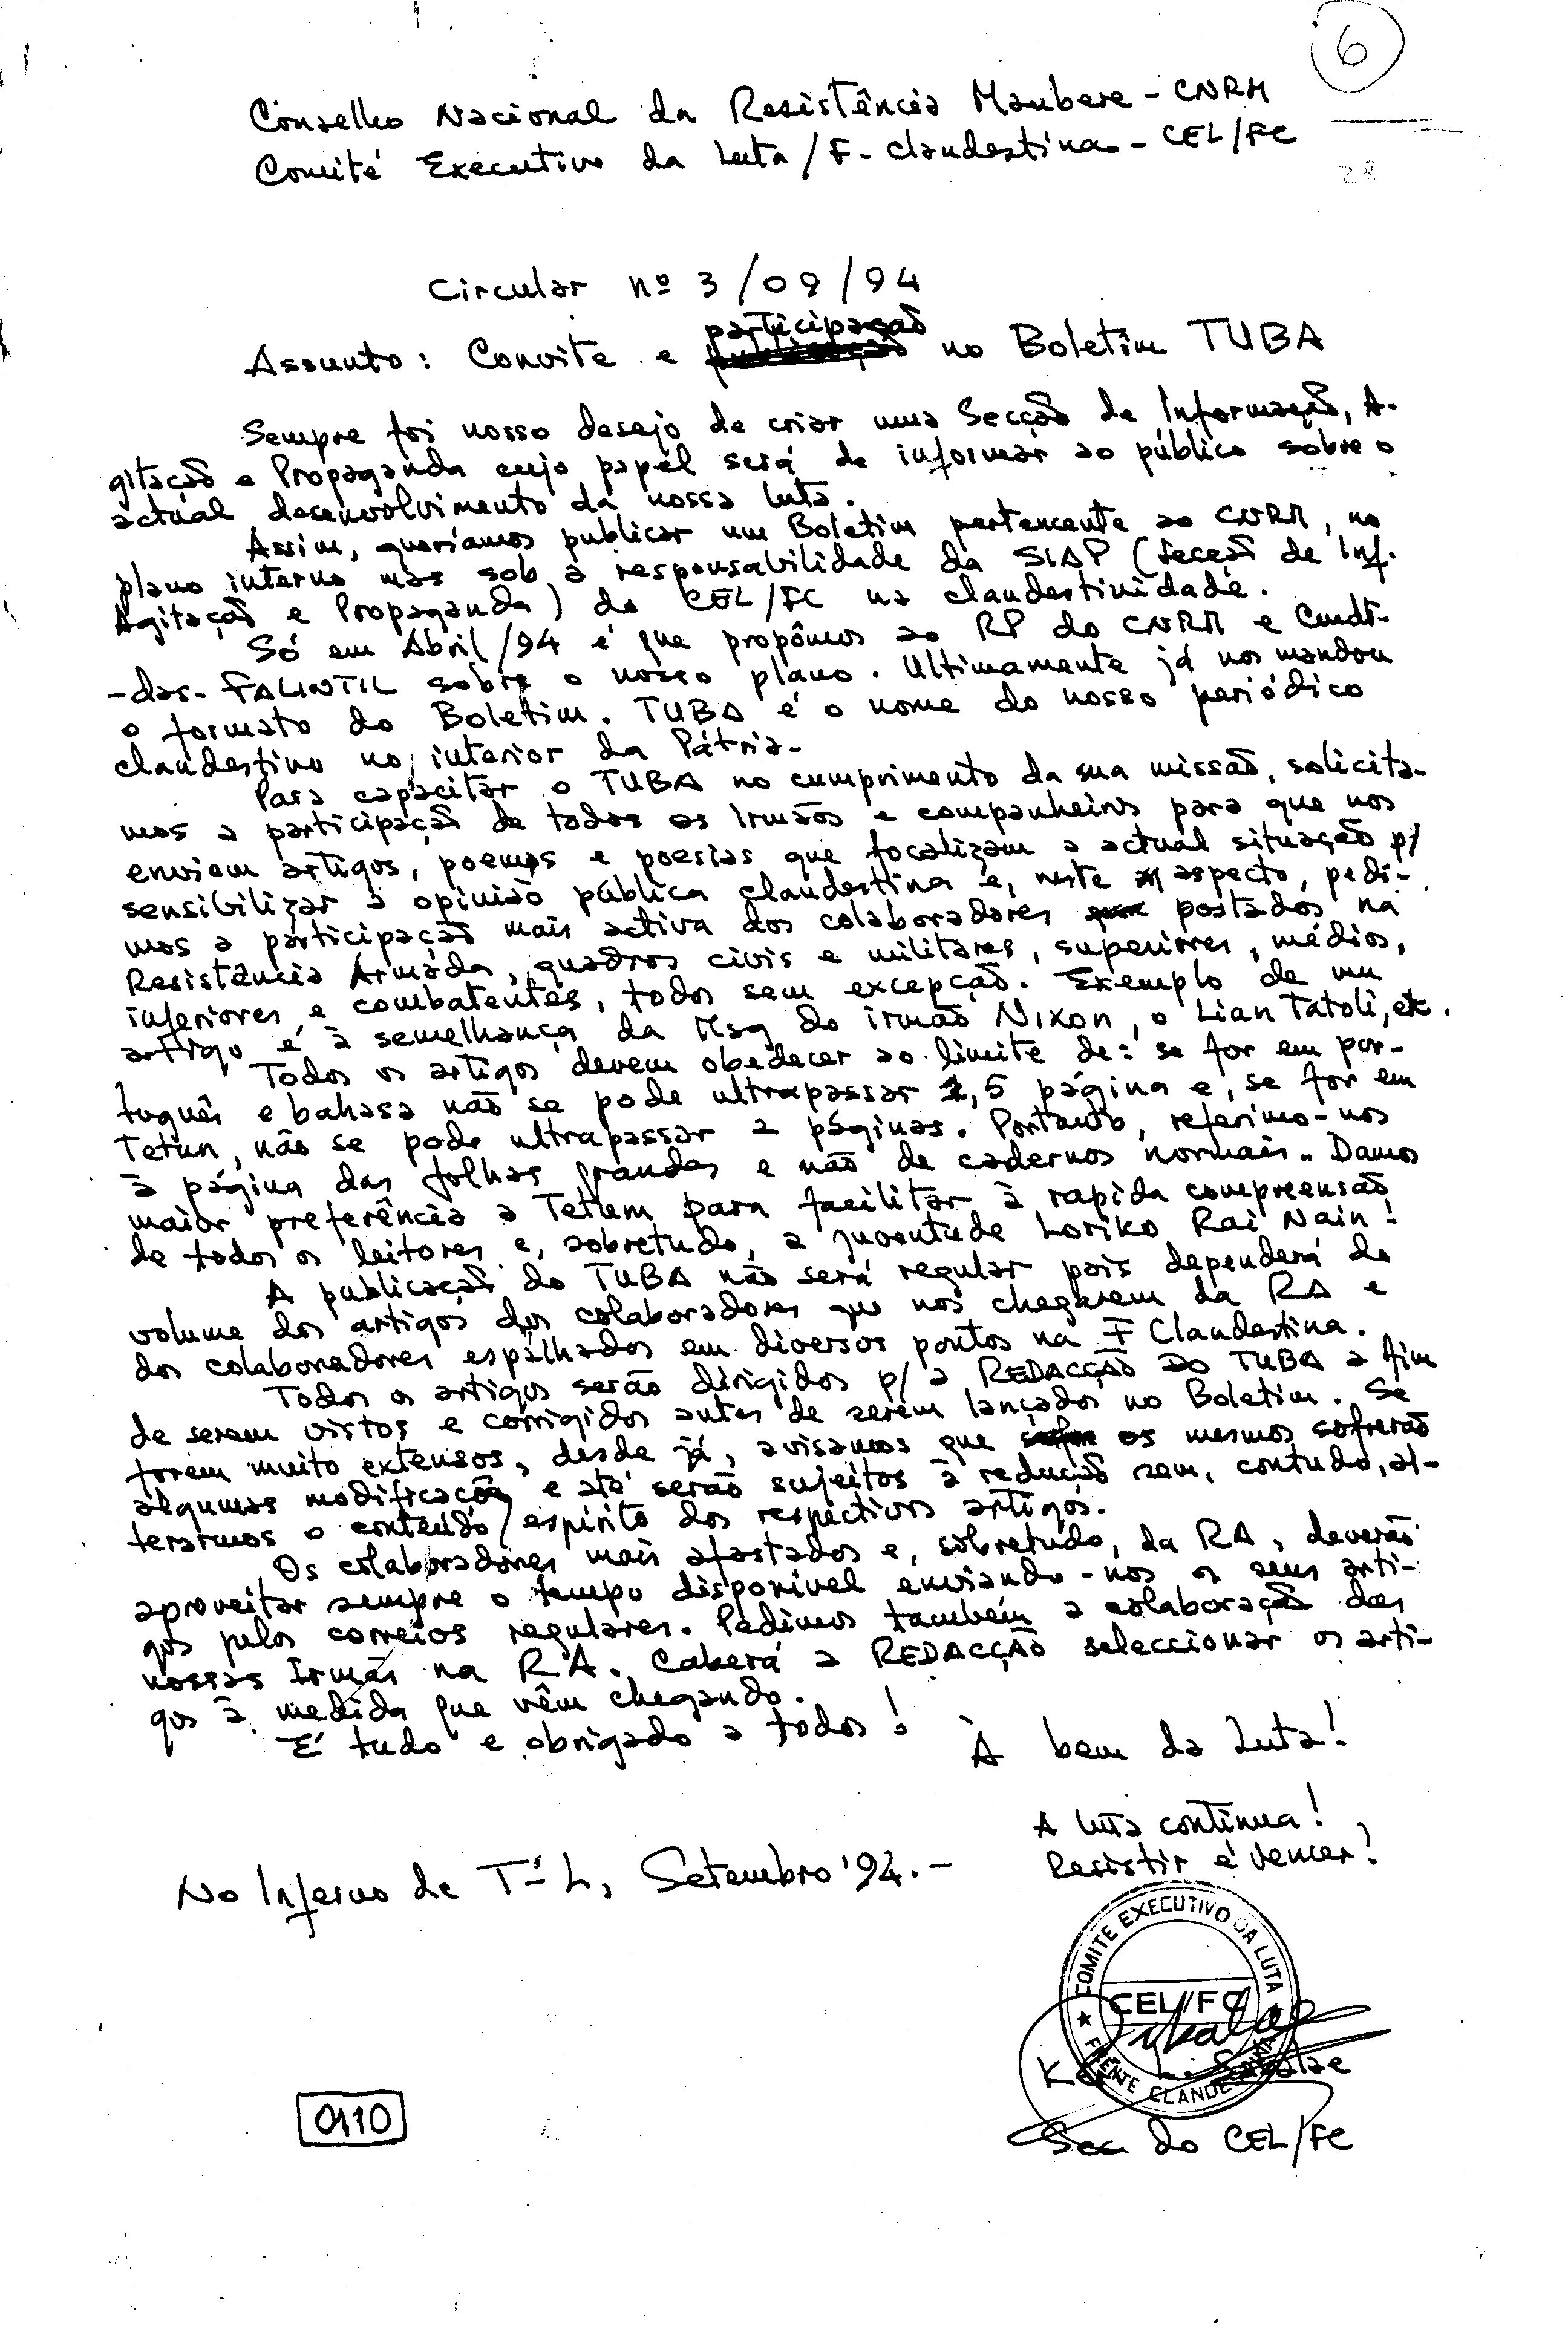 6
Conselho Nacional da Resistência Maubere - CNRM
Comité Executivo da Luta / F. Clandestina - CEL/FC
28
Circular nº 3/09/94
participação
Assunto: Convite e no Boletim TUBA
Sempre foi nosso desejo de criar uma Secção de Informação, A-
gitação e Propaganda cujo papel será de informar ao público sobre o
actual desenvolvimento da nossa luta.
Assim, queríamos publicar um Boletim pertencente ao CNRM, no
plano interno mas sob a responsabilidade da SIAP (Secção de Inf.
Agitação e Propaganda) do CEL/FC na clandestinidade.
Só em Abril/94 é que propômos ao RP do CNRM e Cmdt-
-das- FALINTIL sobre o nosso plano. Ultimamente já nos mandou
o formato do Boletim. TUBA é o nome do nosso periódico
clandestino no interior da Pátria-
Para capacitar o TUBA no cumprimento da sua missão, solicita-
mos a participação de todos os Irmãos e companheiros para que nos
enviem artigos, poemas e poesias que focalizam a actual situação p/
sensibilizar a opinião pública clandestina e, neste aspecto, pedi-
mos a participação mais activa dos colaboradores postados na
Resistência Armada, quadros civis e militares, superiores, médios,
inferiores e combatentes, todos sem excepção. Exemplo de um
artigo é à semelhança da Msg do irmão Nixon, o Lian Tatoli, etc.
Todos os artigos devem obedecer ao limite de: se for em por-
tuguês e bahasa não se pode ultrapassar 1,5 página e, se for em
Tetun, não se pode ultrapassar 2 páginas. Portanto, referimo-nos
à página das folhas grandes e não de cadernos normais.. Damos
maior preferência a Tetum para facilitar à rapida compreensão
de todos os leitores e, sobretudo, a juventude Loriko Rai Nain!
A publicação do TUBA não será regular pois dependerá do
volume dos artigos dos colaboradores que nos chegarem da RA e
dos colaboradores espalhados em diversos pontos na F Clandestina.
Todos os artigos serão dirigidos p/ a REDACÇÃO DO TUBA a fim
de serem vistos e corrigidos antes de serem lançados no Boletim. Se
forem muito extensos, desde já, avisamos que os mesmos sofrerão
algumas modificações e até serão sujeitos à redução sem, contudo, al-
terarmos o conteúdo/espírito dos respectivos artigos.
Os colaboradores mais afastados e, sobretudo, da RA, deverão
aproveitar sempre o tempo disponível enviando-nos os seus arti-
gos pelos correios regulares. Pedimos também a colaboração das
nossas Irmãs na RA. Caberá a REDACÇÃO seleccionar os arti-
gos à medida que vêm chegando.
É tudo e obrigado a todos!
À bem da Luta!
A luta continua!
Resistir é Vencer!
No Inferno de T-L, Setembro '94.-
COMITE EXECUTIVO DA LUTA
CEL/FC
FRENTE CLANDESTINA
Sabalae
Sec do CEL/FC
0110